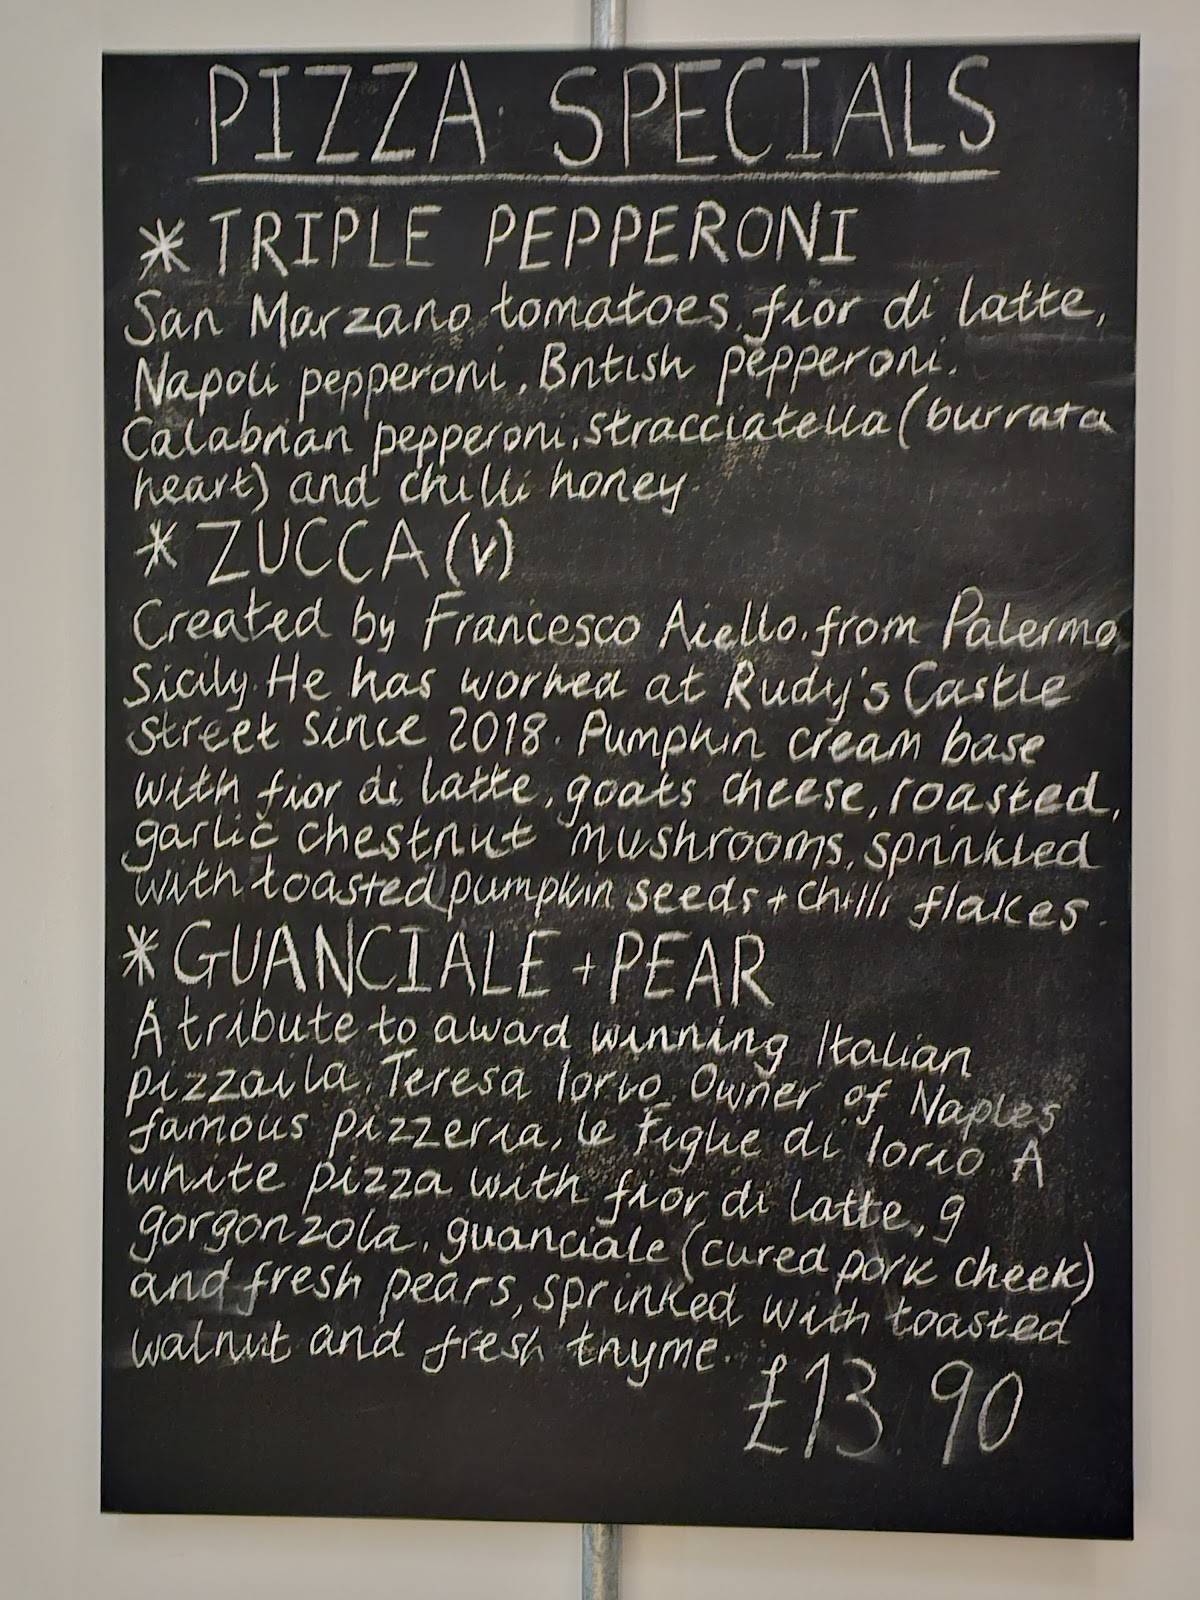 PIZZA SPECIALS
* TRIPLE PEPPERONI
San Marzano tomatoes, fior di latte,
Napoli pepperoni, British pepperoni.
Calabrian pepperoni, stracciatella (burrata
heart) and chilli honey.
* ZUCCA (v)
Created by Francesco Aiello, from Palermo,
Sicily. He has worked at Rudy's Castle
Street since 2018. Pumpkin cream base
with fior di latte, goats cheese, roasted,
garlic chestnut mushrooms, sprinkled
with toasted pumpkin seeds + chilli flakes.
* GUANCIALE + PEAR
A tribute to award winning Italian
pizzaila, Teresa Iorio. Owner of Naples
famous pizzeria, le Figlie di Iorio A
white pizza with fior di latte, g
gorgonzola, guanciale (cured pork cheek)
and fresh pears, sprinked with toasted
walnut and fresh thyme.
£13.90